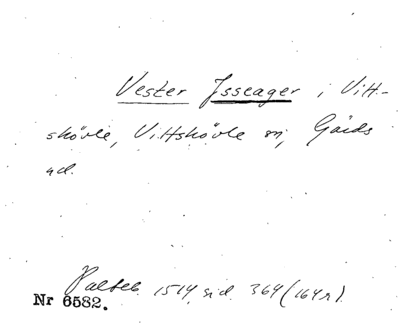 Vester Jsseager i Vitt-
skövle, Vittskövle sn, Gärds
hd.
Palteb. 1514, sid. 364 (164 r).
Nr 6582.